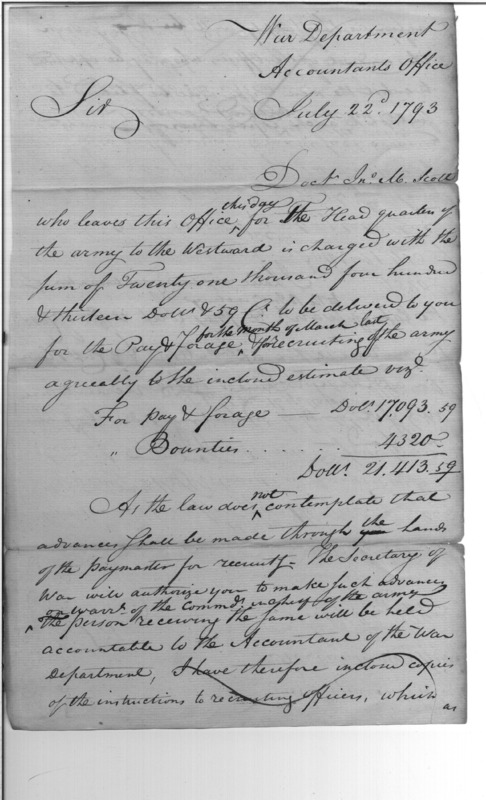 War Department
Accountants Office
July 22d. 1793
Sir
Doct. Jno. M. Scott
who leaves this Office this day for The Head quarters of
the army to the Westward is charged with the
sum of Twenty one thousand four hundred
& thirteen Dolls. & 59 Cs. to be deliverd to you
for the Pay & forage for the months of March last, & for recruiting of the army
agreeably to the inclosed estimate vizt.
For pay & forage — Dolls. 17.093. 59
" Bounties . . . . . . 4320 -
Dolls. 21.413.59
As the law does not contemplate that
advances shall be made through the hands
of the paymaster for recruitg. The Secretary of
War will authorize you to make such advances
on warrts. of the Commdr. in chief of the army
The person receiving the same will be held
accountable to the Accountant of the War
Department, I have therefore inclosed copies
of the instructions to recruiting officers, which
as